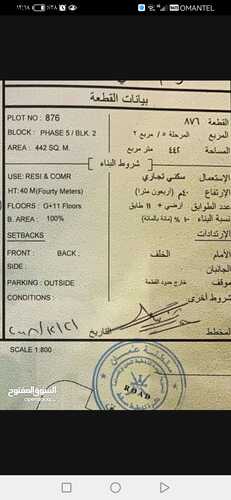 ١٢:١٨ ٢٨٪ OMANTEL
بيانات القطعة
PLOT NO : 876 القطعة ٨٧٦
BLOCK : PHASE 5 / BLK. 2 المربع المرحلة ٥ / مربع ٢
AREA : 442 SQ. M. المساحة ٤٤٢ متر مربع
شروط البناء
USE: RESI & COMR الاستعمال سكني تجاري
HT: 40 M(Fourty Meters) الارتفاع ٤٠م (أربعون مترا)
FLOORS : G+11 Floors عدد الطوابق أرضي + ١١ طابق
B. AREA : 100% نسبة البناء ١٠٠% (مائة بالمائة)
SETBACKS الإرتدادات
FRONT : BACK : الأمام الخلف
SIDE : الجانبان
PARKING : OUTSIDE موقف خارج حدود القطعة
CONDITIONS : شروط أخرى
التاريخ المخطط
SCALE 1:800
السوق المفتوح
opensooq.com
ROAD